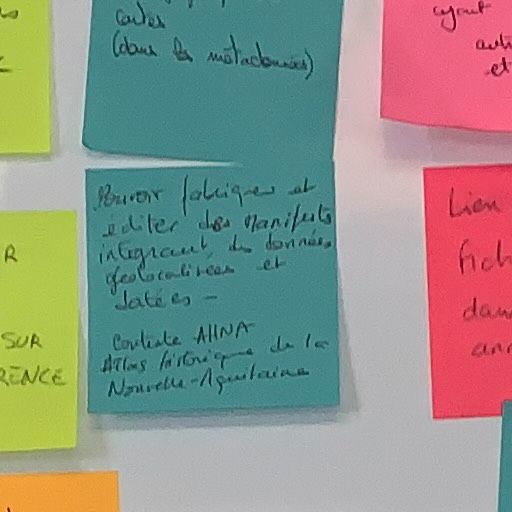 cartes
(dans les métadonnées)
ajout
et
Pouvoir fabriquer et
éditer des Manifests
intégrant des données
géolocalisées et
datées -
contexte AHNA
Atlas historique de la
Nouvelle-Aquitaine
R
SUR
RENCE
Lien
fich
dan
ann